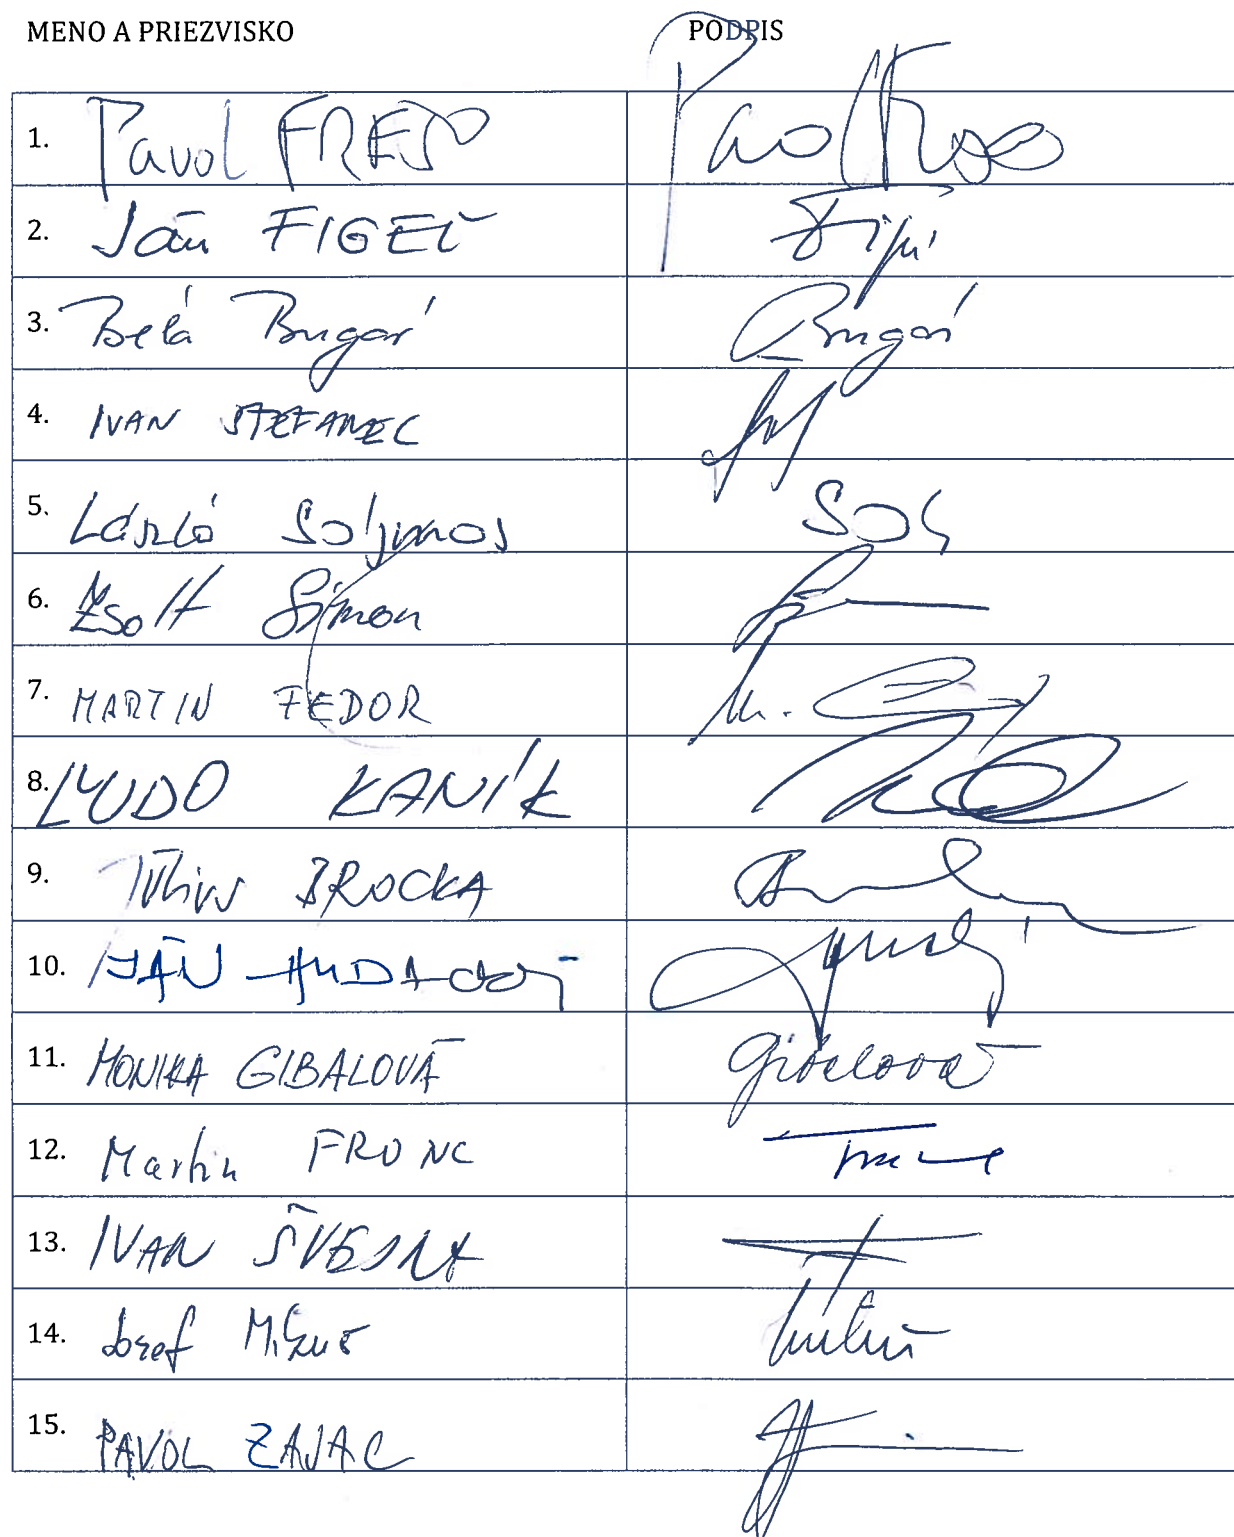 MENO A PRIEZVISKO PODPIS
1. Pavol FREŠO Pavol Frešo
2. Ján FIGEĽ Figeľ
3. Béla Bugár Bugár
4. IVAN ŠTEFANEC
5. László Sólymos Sol
6. Zsolt Simon
7. MARTIN FEDOR M.
8. ĽUDO KANÍK
9. Július BROCKA
10. JÁN HUDACKÝ
11. MONIKA GIBALOVÁ Gibalová
12. Martin FRONC Fronc
13. IVAN ŠVEJNA
14. Jozef Mikuš Mikuš
15. PAVOL ZAJAC